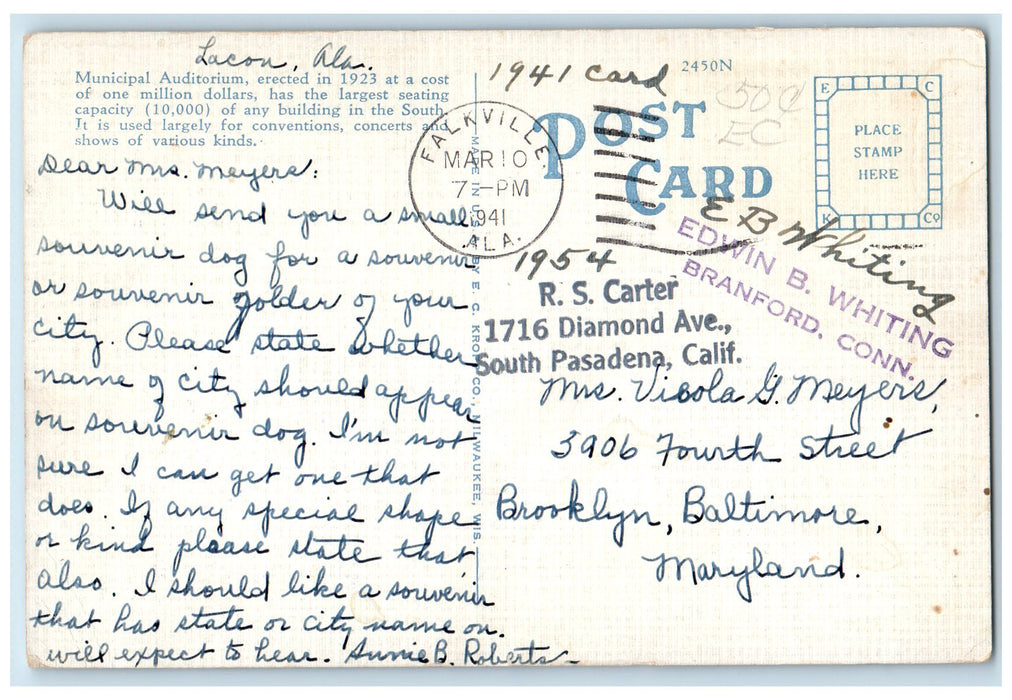 Lacon, Ala.
Municipal Auditorium, erected in 1923 at a cost
of one million dollars, has the largest seating
capacity (10,000) of any building in the South.
It is used largely for conventions, concerts and
shows of various kinds.
Dear Mrs. Meyers:
Will send you a small
souvenir dog for a souvenir
or souvenir folder of your
city. Please state whether
name of city should appear
on souvenir dog. I'm not
sure I can get one that
does. If any special shape
or kind please state that
also. I should like a souvenir
that has state or city name on.
will expect to hear. Annie B. Roberts
MADE IN U.S.A. BY E. C. KROPP CO., MILWAUKEE, WIS.
1941 card
2450N
50¢
EC
POST
CARD
FALKVILLE
MAR 10
7-PM
1941
ALA.
E C
PLACE
STAMP
HERE
K Co
E B Whiting
EDWIN B. WHITING
BRANFORD, CONN.
1954
R. S. Carter
1716 Diamond Ave.,
South Pasadena, Calif.
Mrs. Viola G. Meyers,
3906 Fourth Street
Brooklyn, Baltimore,
Maryland.